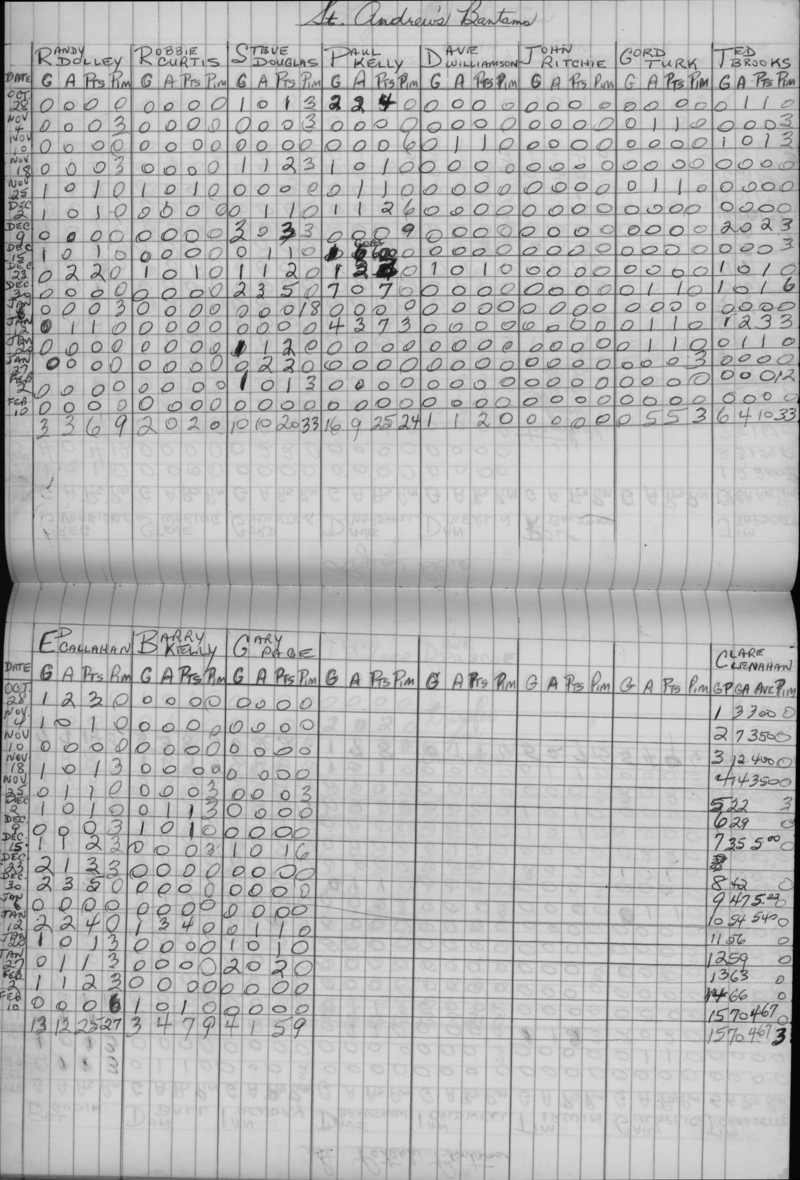 St. Andrew's Bantams
RANDY DOLLEY ROBBIE CURTIS STEVE DOUGLAS PAUL KELLY DAVE WILLIAMSON JOHN RITCHIE GORD TURK TED BROOKS
DATE G A Pts Pim G A Pts Pim G A Pts Pim G A Pts Pim G A Pts Pim G A Pts Pim G A Pts Pim G A Pts Pim
OCT 28 0 0 0 0 0 0 0 0 1 0 1 3 2 2 4 0 0 0 0 0 0 0 0 0 0 0 0 0 0 1 1 0
NOV 4 0 0 0 3 0 0 0 0 0 0 0 3 0 0 0 0 0 0 0 0 0 0 0 0 0 1 1 0 0 0 0 3
NOV 10 0 0 0 0 0 0 0 0 0 0 0 0 0 0 0 6 0 1 1 0 0 0 0 0 0 0 0 0 1 0 1 3
NOV 18 0 0 0 3 0 0 0 0 1 1 2 3 1 0 1 0 0 0 0 0 0 0 0 0 0 0 0 0 0 0 0 0
NOV 25 1 0 1 0 1 0 1 0 0 0 0 0 0 1 1 0 0 0 0 0 0 0 0 0 0 1 1 0 0 0 0 0
DEC 2 1 0 1 0 0 0 0 0 0 1 1 0 1 1 2 6 0 0 0 0 0 0 0 0 0 0 0 0 0 0 0 0
DEC 9 0 0 0 0 0 0 0 0 3 0 3 3 0 0 0 9 0 0 0 0 0 0 0 0 0 0 0 0 2 0 2 3
DEC 15 1 0 1 0 0 0 0 0 0 1 1 0 0 0 0 0 0 0 0 0 0 0 0 0 0 0 0 3
DEC 23 0 2 2 0 1 0 1 0 1 1 2 0 1 2 3 0 1 0 1 0 0 0 0 0 0 0 0 0 1 0 1 0
DEC 30 0 0 0 0 0 0 0 0 2 3 5 0 7 0 7 0 0 0 0 0 0 0 0 0 0 1 1 0 1 0 1 6
JAN 6 0 0 0 3 0 0 0 0 0 0 0 18 0 0 0 0 0 0 0 0 0 0 0 0 0 0 0 0 0 0 0 0
JAN 12 0 1 1 0 0 0 0 0 0 0 0 0 4 3 7 3 0 0 0 0 0 0 0 0 0 1 1 0 1 2 3 3
JAN 20 0 0 0 0 0 0 0 0 1 1 2 0 0 0 0 0 0 0 0 0 0 0 0 0 0 1 1 0 0 1 1 0
JAN 27 0 0 0 0 0 0 0 0 0 2 2 0 0 0 0 0 0 0 0 0 0 0 0 0 0 0 0 3 0 0 0 0
FEB 2 0 0 0 0 0 0 0 0 1 0 1 3 0 0 0 0 0 0 0 0 0 0 0 0 0 0 0 0 0 0 0 12
FEB 10 0 0 0 0 0 0 0 0 0 0 0 0 0 0 0 0 0 0 0 0 0 0 0 0 0 0 0 0 0 0 0 0
3 3 6 9 2 0 2 0 10 10 20 33 16 9 25 24 1 1 2 0 0 0 0 0 0 5 5 3 6 4 10 33
ED CALLAHAN BARRY KELLY GARY PAGE CLARE CLENAHAN
DATE G A Pts Pim G A Pts Pim G A Pts Pim G A Pts Pim G A Pts Pim G A Pts Pim G A Pts Pim GP GA AVE Pim
OCT. 28 1 2 3 0 0 0 0 0 0 0 0 0 1 3 3 00 0
NOV. 4 1 0 1 0 0 0 0 0 0 0 0 0 2 7 3 50 0
NOV 10 0 0 0 0 0 0 0 0 0 0 0 0 3 12 4 00 0
NOV. 18 1 0 1 3 0 0 0 0 0 0 0 0 4 14 3 50 0
NOV 25 0 1 1 0 0 0 0 3 0 0 0 3 5 22 3
DEC 2 1 0 1 0 0 1 1 3 0 0 0 0 6 29 0
DEC. 9 0 0 0 3 1 0 1 0 0 0 0 0 7 35 5 00 0
DEC. 15 1 1 2 3 0 0 0 3 1 0 1 6
DEC 23 2 1 3 3 0 0 0 0 0 0 0 0 8 42 0
DEC. 30 2 3 5 0 0 0 0 0 0 0 0 0 9 47 5.22 0
JAN 6 0 0 0 0 0 0 0 0 0 0 0 0 10 54 5 40 0
JAN 12 2 2 4 0 1 3 4 0 0 1 1 0 11 56 0
JAN 20 1 0 1 3 0 0 0 0 1 0 1 0 12 59 0
JAN 27 0 1 1 3 0 0 0 0 2 0 2 0 13 63 0
FEB 2 1 1 2 3 0 0 0 0 0 0 0 0 14 66 0
FEB 10 0 0 0 6 1 0 1 0 0 0 0 0 15 70 4 67 0
13 12 25 27 3 4 7 9 4 1 5 9 15 70 4 67 3